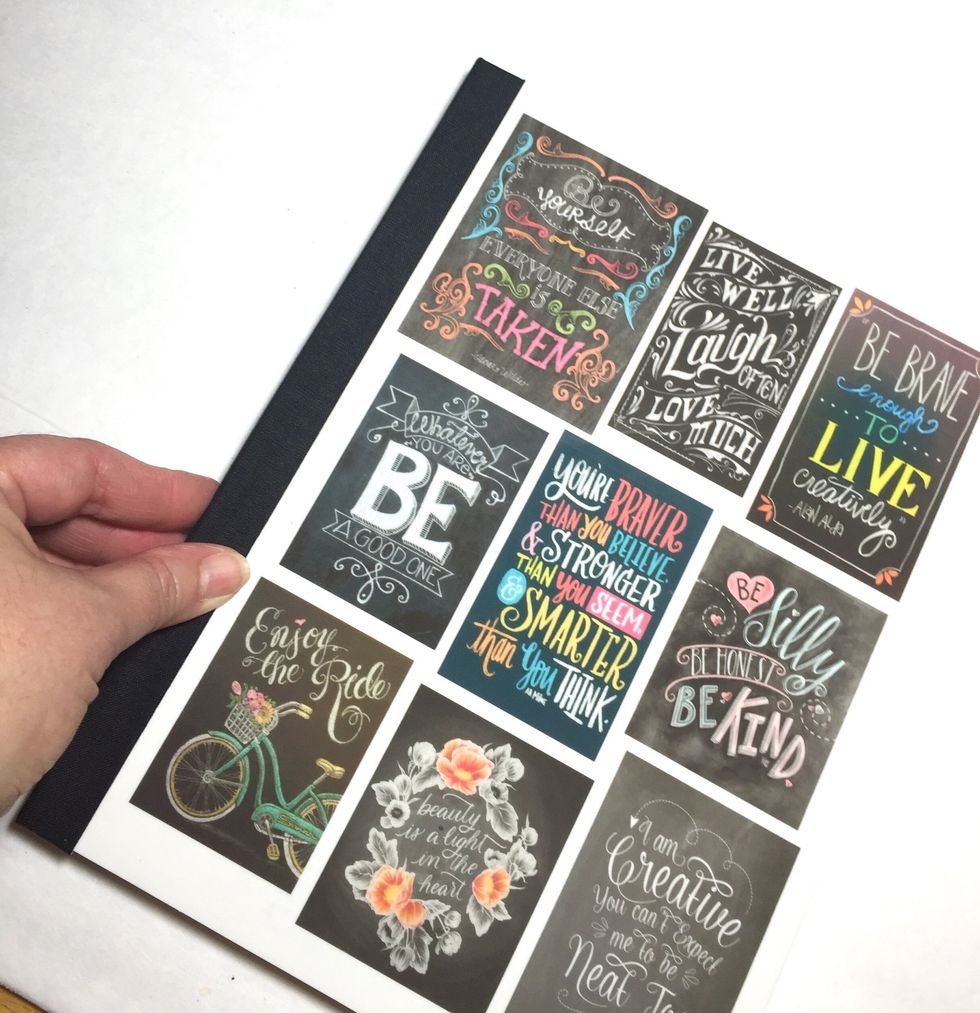 Be
yourself
EVERYONE ELSE
is
TAKEN
LIVE
WELL
Laugh
OFTEN
LOVE
MUCH
"BE BRAVE
enough
TO
LIVE
creatively"
-ALAN ALDA
Whatever
YOU ARE
BE
A GOOD ONE
YOU'RE BRAVER
THAN YOU BELIEVE,
& STRONGER
THAN YOU SEEM,
& SMARTER
than YOU THINK.
BE
Silly
BE HONEST
BE KIND
Enjoy
the Ride
beauty
is a light
in the
heart
I am
Creative
You can't Expect
me to be
Neat